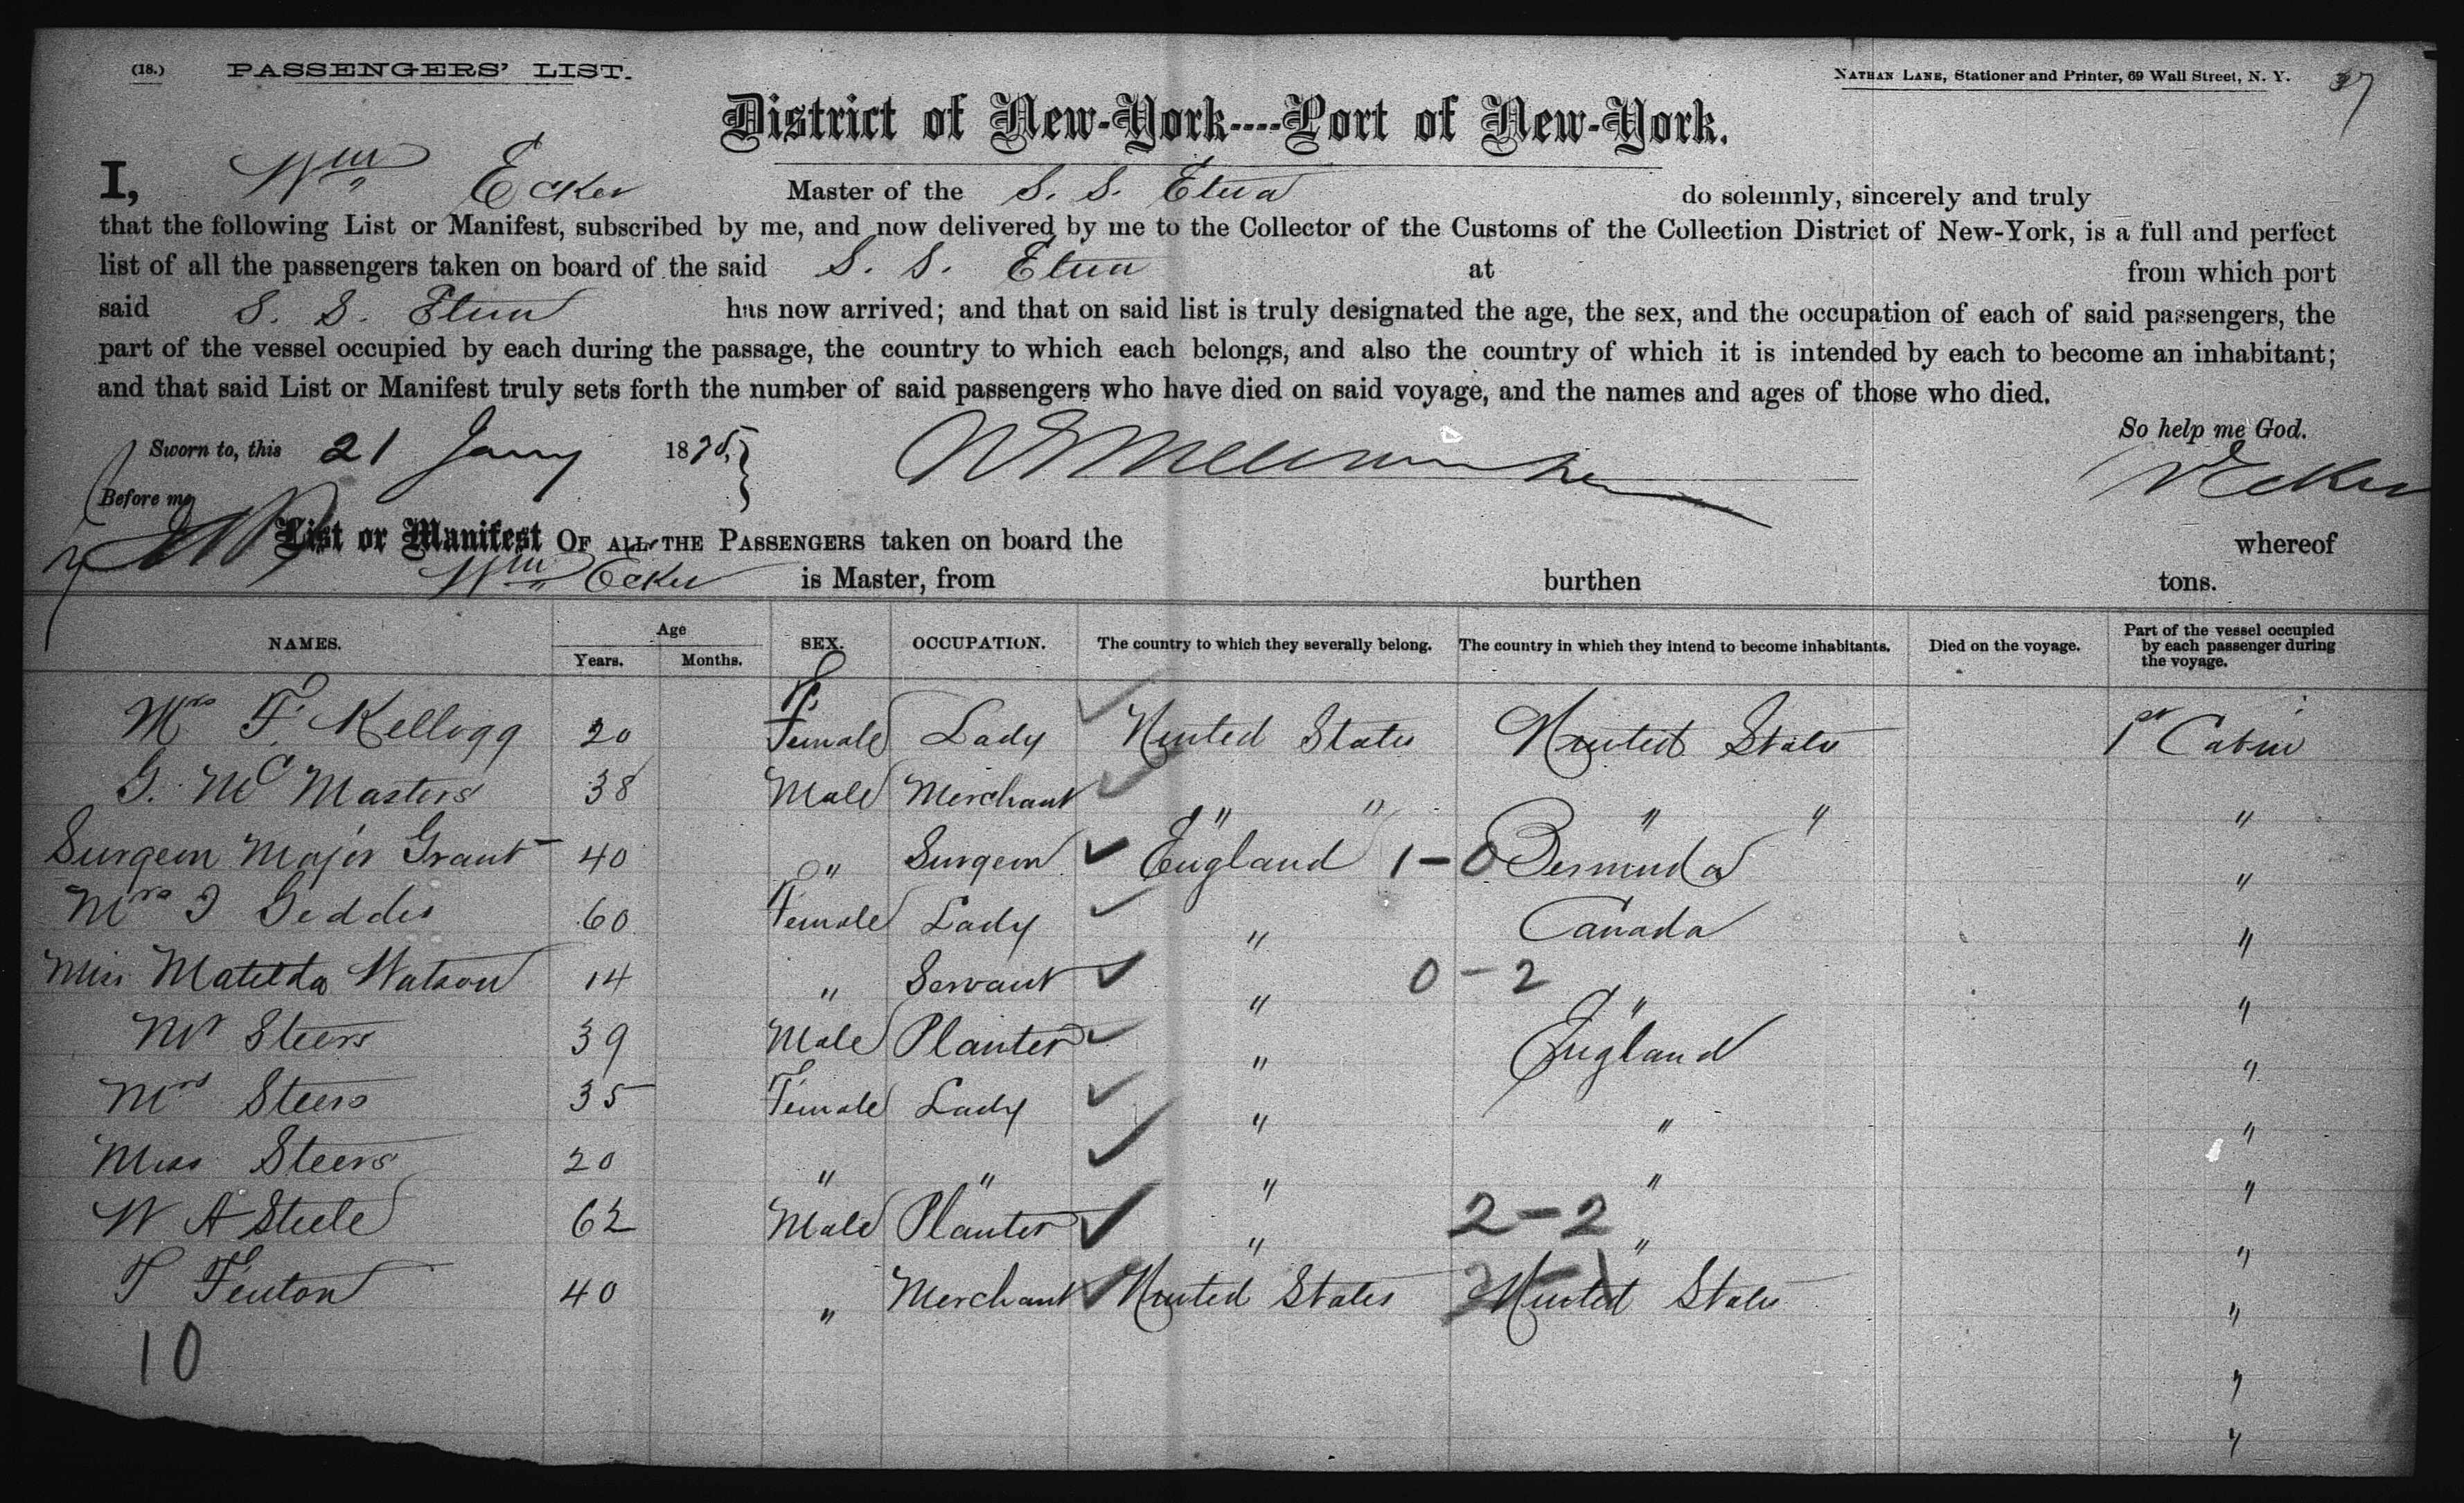 (18.) PASSENGERS' LIST. NATHAN LANE, Stationer and Printer, 69 Wall Street, N. Y. 37
District of New-York----Port of New-York.
I, Wm Ecker Master of the S. S. Etna do solemnly, sincerely and truly
that the following List or Manifest, subscribed by me, and now delivered by me to the Collector of the Customs of the Collection District of New-York, is a full and perfect
list of all the passengers taken on board of the said S. S. Etna at from which port
said S. S. Etna has now arrived; and that on said list is truly designated the age, the sex, and the occupation of each of said passengers, the
part of the vessel occupied by each during the passage, the country to which each belongs, and also the country of which it is intended by each to become an inhabitant;
and that said List or Manifest truly sets forth the number of said passengers who have died on said voyage, and the names and ages of those who died.
So help me God.
Sworn to, this 21 Jany 1875, W Ecker
Before me
List or Manifest OF ALL THE PASSENGERS taken on board the whereof
Wm Ecker is Master, from burthen tons.
NAMES. Age Years. Months. SEX. OCCUPATION. The country to which they severally belong. The country in which they intend to become inhabitants. Died on the voyage. Part of the vessel occupied by each passenger during the voyage.
Mrs F. Kellogg 20 Female Lady United States United States 1st Cabin
G. Mc Masters 38 Male Merchant " " " " "
Surgeon Major Grant 40 " Surgeon England 1-0 Bermuda "
Mrs J Geddes 60 Female Lady " Canada "
Miss Matilda Watson 14 " Servant " 0-2 " "
Mr Steers 39 Male Planter " England "
Mrs Steers 35 Female Lady " " "
Miss Steers 20 " " " " "
W A Steele 62 Male Planter " 2-2 " "
T Fenton 40 " Merchant United States United States "
10 "
"